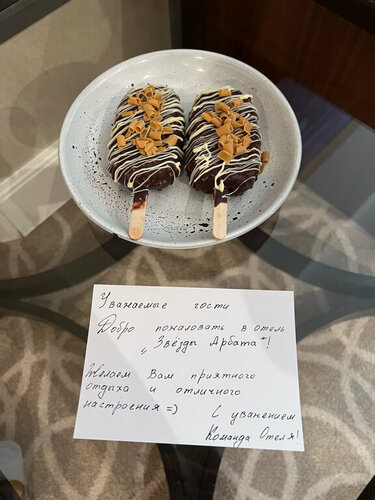 Уважаемые гости
Добро пожаловать в отель
„Звёзды Арбата"!
Желаем Вам приятного
отдыха и отличного
настроения =)
С уважением
Команда Отеля!